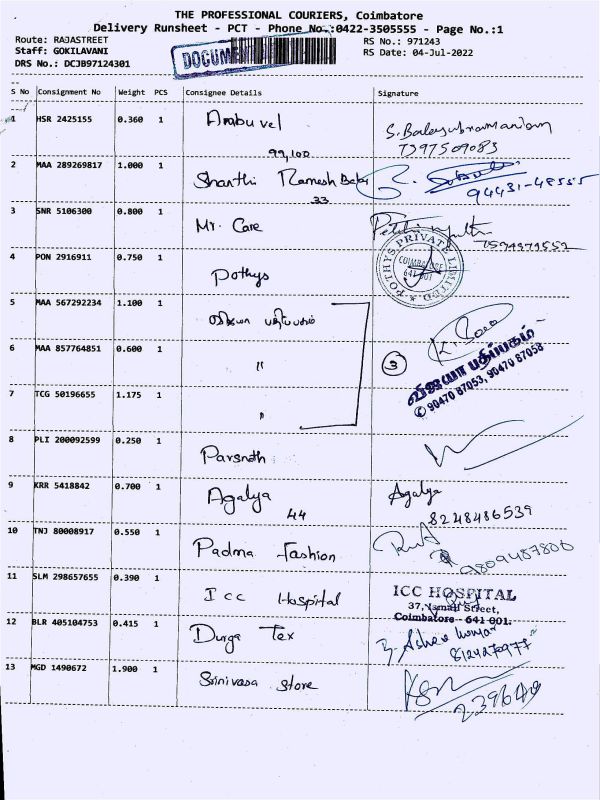 THE PROFESSIONAL COURIERS, Coimbatore
Delivery Runsheet - PCT - Phone No.:0422-3505555 - Page No.:1
Route: RAJASTREET
RS No.: 971243
Staff: GOKILAVANI
RS Date: 04-Jul-2022
DRS No.: DCJB97124301
DOCUMEN
S No Consignment No Weight PCS Consignee Details Signature
1 HSR 2425155 0.360 1 Anbuvel
99,100
S. Balasubramaniam
7397509083
2 MAA 289269817 1.000 1 Shanthi Ramesh Babu
33
94431-48555
3 SNR 5106300 0.800 1 Mr. Care
4 PON 2916911 0.750 1 Pothys
POTHYS PRIVATE LIMITED
COIMBATORE
641 001
5 MAA 567292234 1.100 1 விஜயா பதிப்பகம்
6 MAA 857764851 0.600 1 "
3
விஜயா பதிப்பகம்
90470 87053, 90470 87058
7 TCG 50196655 1.175 1 "
8 PLI 200092599 0.250 1 Parsnath
9 KRR 5418842 0.700 1 Agalya
44
Agalya
8248486539
10 TNJ 80008917 0.550 1 Padma Fashion
9809487806
11 SLM 298657655 0.390 1 ICC Hospital
ICC HOSPITAL
37, Ismail Street,
Coimbatore - 641 001.
12 BLR 405104753 0.415 1 Durga Tex
8124270977
13 MGD 1490672 1.900 1 Srinivasa Store
239649